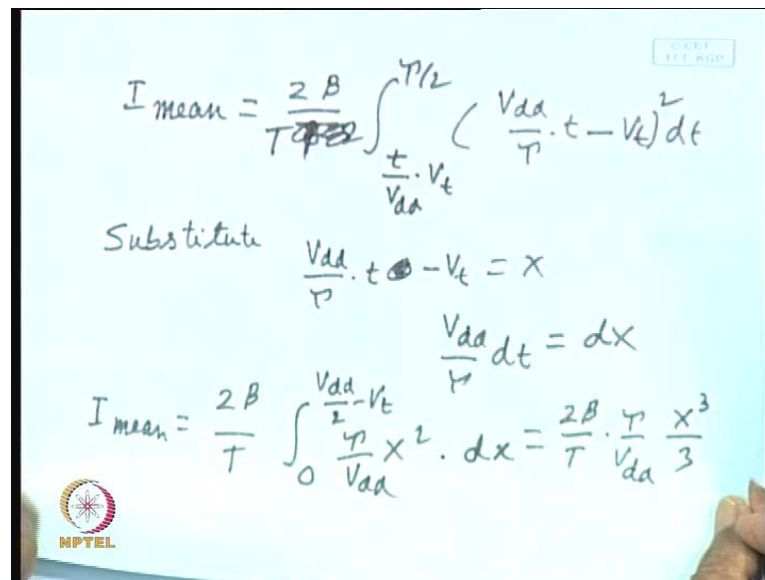 © CET
I.I.T. KGP
I mean = 2β/T ∫_{t/Vdd · Vt}^{τ/2} (Vdd/τ · t – Vt)² dt
Substitute
Vdd/τ · t – Vt = x
Vdd/τ dt = dx
I mean = 2β/T ∫_0^{Vdd/2 – Vt} τ/Vdd x² · dx = 2β/T · τ/Vdd x³/3
NPTEL